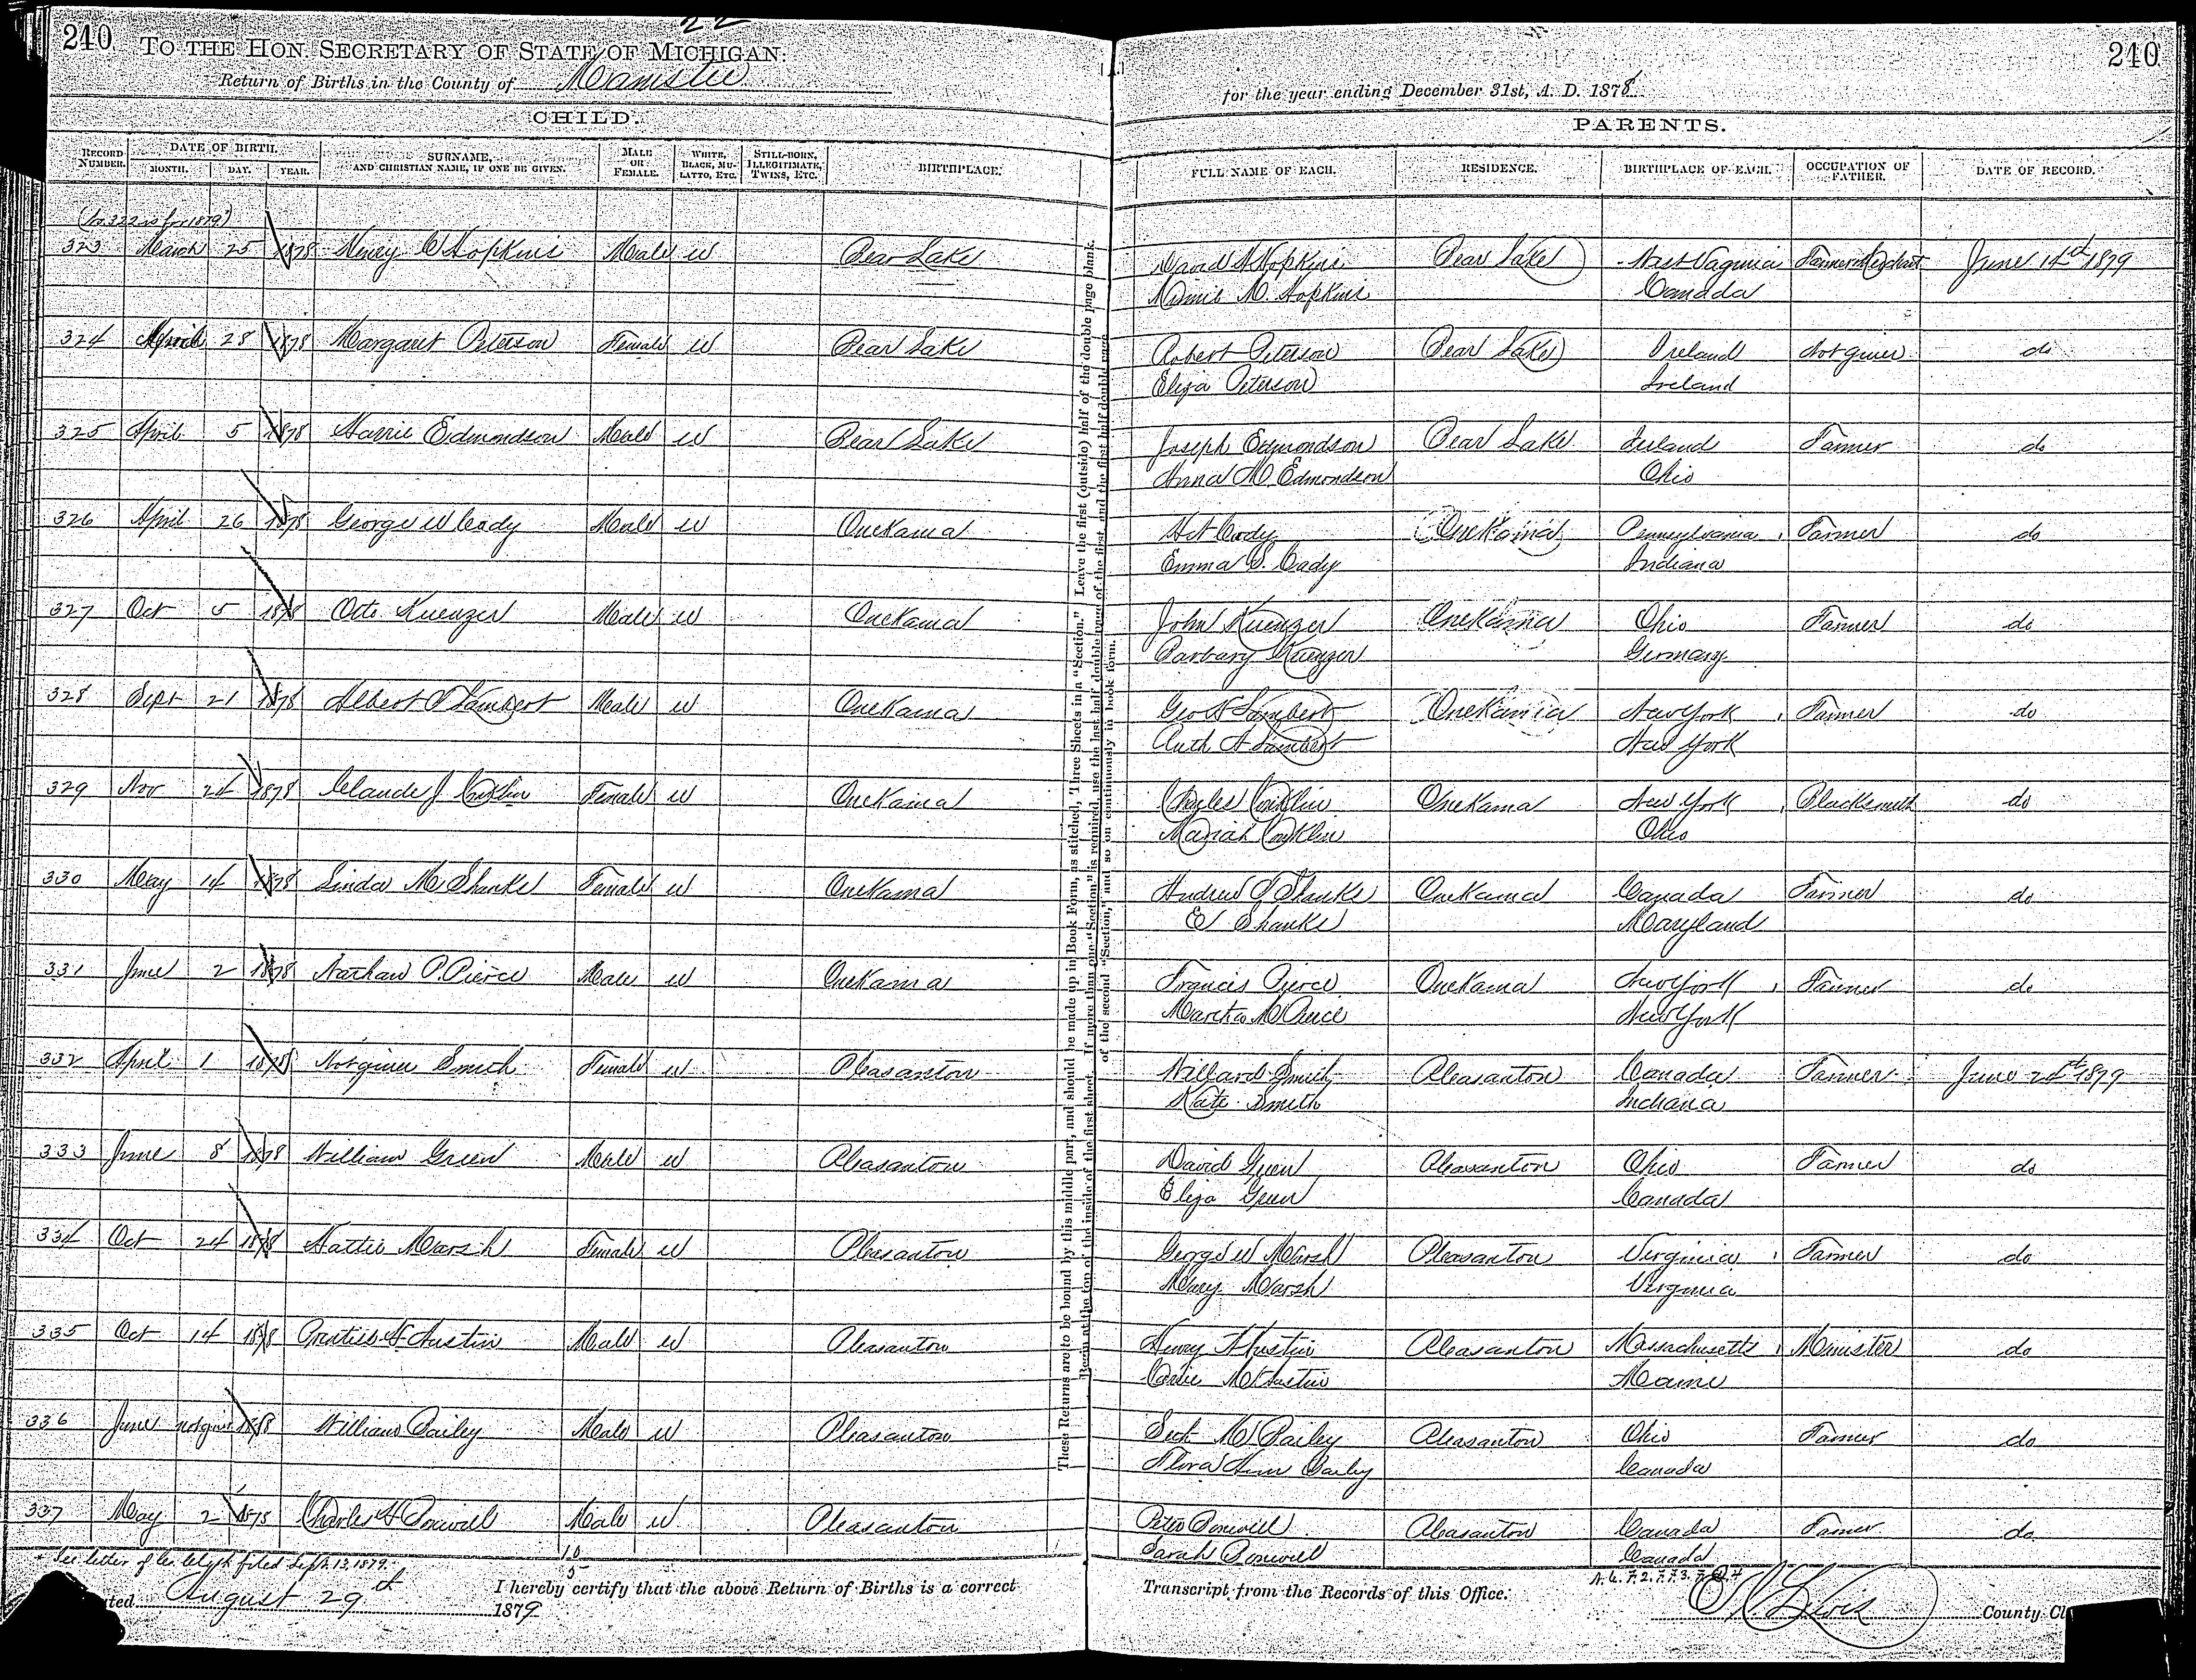 22
240 TO THE HON. SECRETARY OF STATE OF MICHIGAN:
Return of Births in the County of Manistee
for the year ending December 31st, A. D. 1878
240
CHILD.
PARENTS.
RECORD NUMBER. DATE OF BIRTH. MONTH. DAY. YEAR. SURNAME, AND CHRISTIAN NAME, IF ONE BE GIVEN. MALE OR FEMALE. WHITE, BLACK, MULATTO, ETC. STILL-BORN, ILLEGITIMATE, TWINS, ETC. BIRTHPLACE. FULL NAME OF EACH. RESIDENCE. BIRTHPLACE OF EACH. OCCUPATION OF FATHER. DATE OF RECORD.
(No 322 is for 1879)
323 March 25 1878 Henry C Hopkins Male W Bear Lake David A Hopkins Bear Lake West Virginia Farmer June 14th 1879
M. Hopkins Canada
324 April 28 1878 Margaret Peterson Female W Bear Lake Robert Peterson Bear Lake Ireland Not given do
Eliza Peterson Ireland
325 April 5 1878 Harrie Edmondson Male W Bear Lake Joseph Edmondson Bear Lake Ireland Farmer do
Anna M Edmondson Ohio
326 April 26 1878 George W Cady Male W Onekama Cady Onekama Pennsylvania Farmer do
Emma S. Cady Indiana
327 Oct 5 1878 Otto Kuenzer Male W Onekama John Kuenzer Onekama Ohio Farmer do
Barbary Kuenzer Germany
328 Sept 21 1878 Albert O Lambert Male W Onekama Geo H Lambert Onekama New York Farmer do
Ruth A Lambert New York
329 Nov 24 1878 Claude J Conklin Female W Onekama Charles Conklin Onekama New York Blacksmith do
Mariah Conklin Ohio
330 May 14 1878 Linda M Shanks Female W Onekama Andrew J Shanks Onekama Canada Farmer do
E Shanks Maryland
331 June 2 1878 Nathan P. Pierce Male W Onekama Francis Pierce Onekama New York Farmer do
Martha M Pierce New York
332 April 1 1878 Not given Smith Female W Pleasanton Willard Smith Pleasanton Canada Farmer June 24th 1879
Kate Smith Indiana
333 June 8 1878 William Green Male W Pleasanton David Green Pleasanton Ohio Farmer do
Eliza Green Canada
334 Oct 24 1878 Hattie Marsh Female W Pleasanton George W Marsh Pleasanton Virginia Farmer do
Mary Marsh Virginia
335 Oct 14 1878 Prentice H Austin Male W Pleasanton Henry Austin Pleasanton Massachusetts Minister do
Carrie M Austin Maine
336 June not given 1878 William Bailey Male W Pleasanton M Bailey Pleasanton Ohio Farmer do
Flora Ann Bailey Canada
337 May 2 1878 Charles H Bonwell Male W Pleasanton Peter Bonwell Pleasanton Canada Farmer do
Sarah Bonwell Canada
See letter of Co. Clerk filed Sept. 13, 1879.
10
5
Dated August 29th 1879 I hereby certify that the above Return of Births is a correct Transcript from the Records of this Office.
County Cl
These Returns are to be bound by this middle part, and should be made up in Book Form, as stitched, Three Sheets in a "Section." Leave the first (outside) half of the double page blank.
Begin at the top of the inside of the first sheet. If more than one "Section" is required, use the last half double page of the first and the first half double page
of the second "Section," and so on continuously in book form.